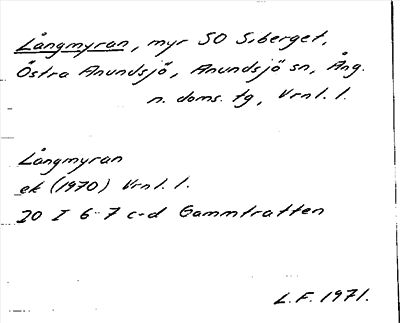 Långmyran, myr SO Siberget,
Östra Anundsjö, Anundsjö sn, Ång.
n. doms. tg, Vrnl. l.
Långmyran
ek (1970) Vrnl. l.
20 I 6-7 c-d Gammtratten
L.F. 1971.